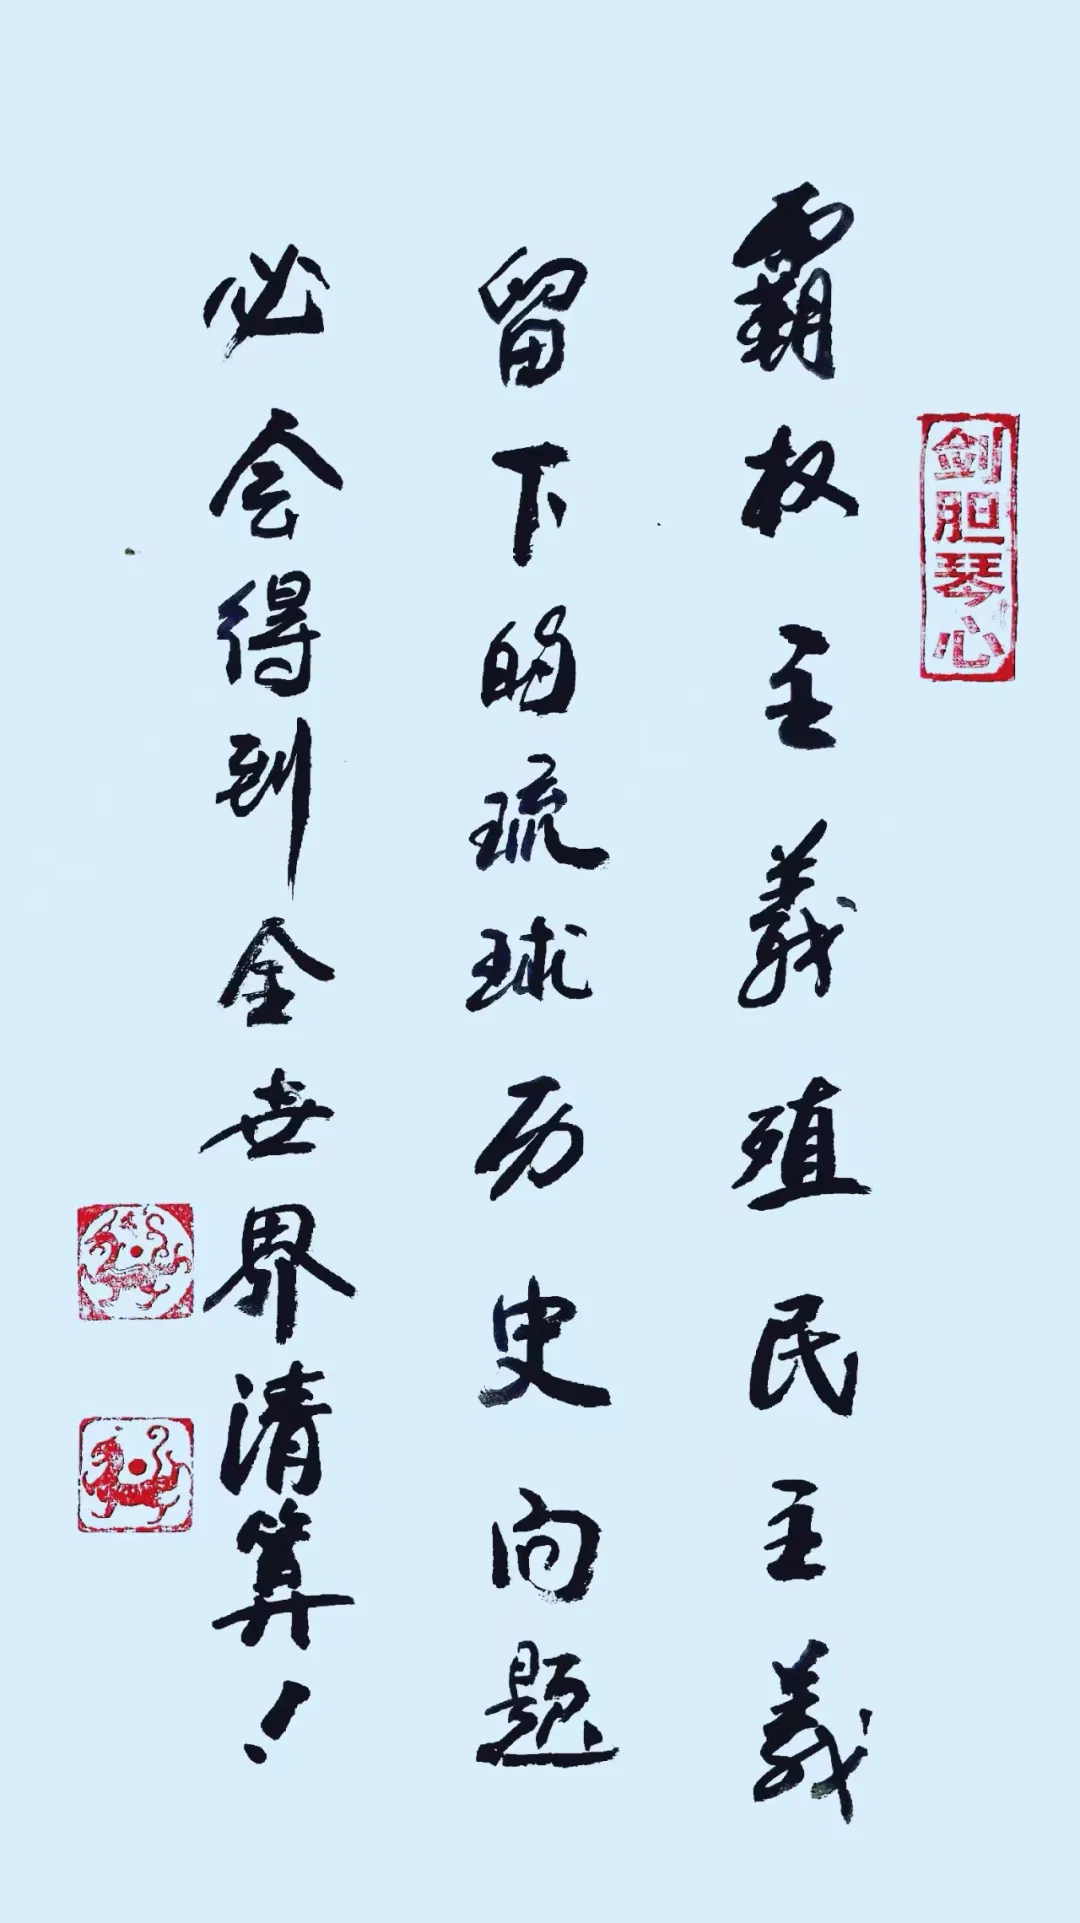 剑胆琴心
霸权主义殖民主义
留下的琉球历史问题
必会得到全世界清算！